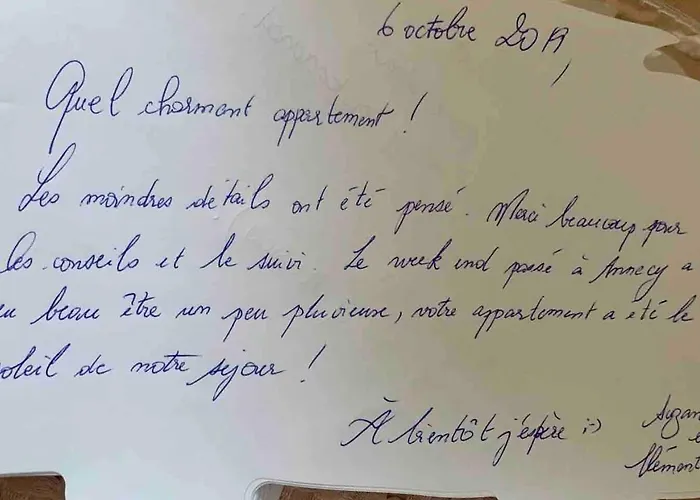 6 octobre 2019,
Quel charmant appartement !
Les moindres détails ont été pensé. Merci beaucoup pour
les conseils et le suivi. Le week end passé à Annecy a
eu beau être un peu pluvieuse, votre appartement a été le
soleil de notre séjour !
À bientôt j'espère :-)